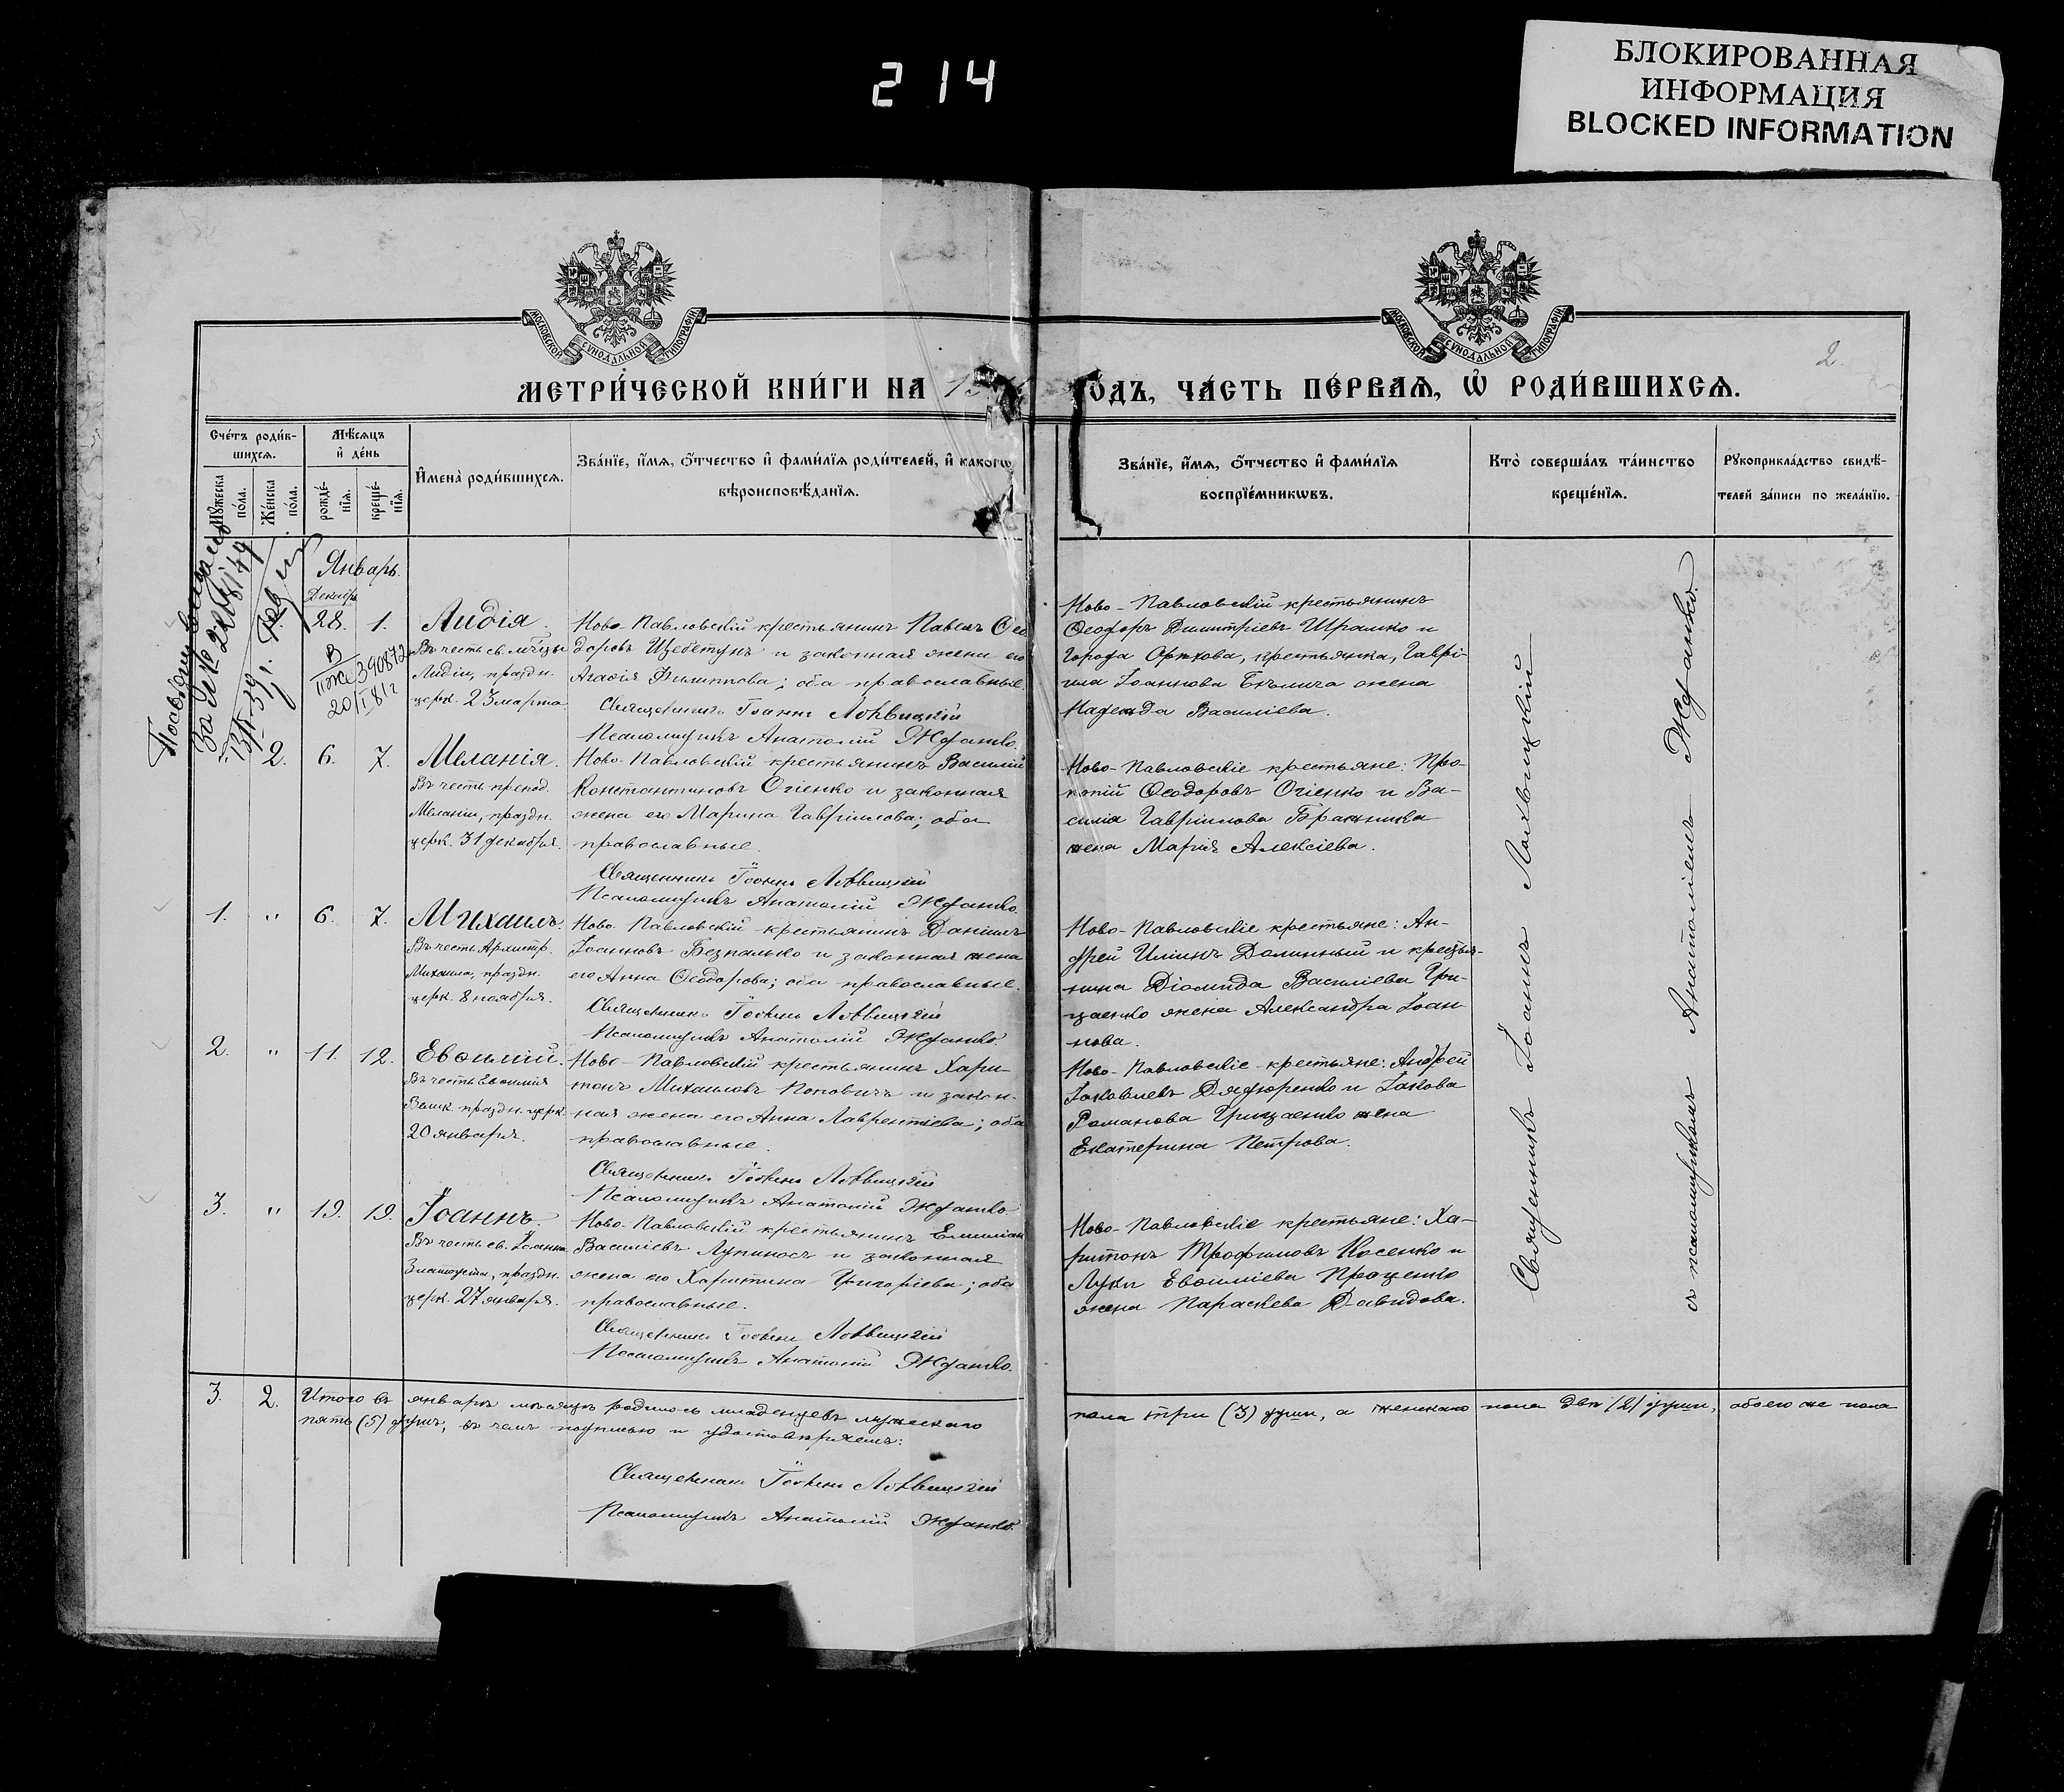 214
БЛОКИРОВАННАЯ
ИНФОРМАЦИЯ
BLOCKED INFORMATION
МОСКОВСКОЙ СѴНОДАЛЬНОЙ ТИПОГРАФІИ
МОСКОВСКОЙ СѴНОДАЛЬНОЙ ТИПОГРАФІИ
2.
МЕТРИ́ЧЕСКОЙ КНИ́ГИ НА 19
ГОДЪ, ЧА́СТЬ ПЕ́РВАѦ, Ѡ҆ РОДИ́ВШИХСѦ.
Сче́тъ роди́в-
шихсѧ.
Мꙋ́жеска
по́ла.
Же́нска
по́ла.
Мѣ́сѧцъ
и҆ де́нь
рожде́-
нїѧ.
креще́-
нїѧ.
И҆мена̀ роди́вшихсѧ.
Зва́нїе, и҆́мѧ, ѻ҆́тчество и҆ фами́лїѧ роди́телей, и҆ какогѡ
вѣроисповѣ́данїѧ.
Зва́нїе, и҆́мѧ, ѻ҆́тчество и҆ фами́лїѧ
воспрїе́мникѡвъ.
Кто̀ соверша́лъ та́инство
креще́нїѧ.
Рꙋкоприкла́дство свидѣ́-
телей за́писи по жела́нїю.
Январь.
Декабрь
28. 1. Лидія.
Въ честь св. мч-цы
Лидіи, праздн.
церк. 23 марта.
390872
20/I 81г
Ново-Павловскій крестьянинъ Павелъ Ѳео
доровъ Щебетунъ и законная жена его
Агаѳія Филиппова; оба православные.
Священникъ Іоаннъ Лохвицкій
Псаломщикъ Анатолій Жданко.
Ново-Павловскій крестьянинъ
Ѳеодоръ Димитріевъ Шрамко и
города Орѣхова, крестьянка, Гаврі-
ила Іоаннова жена
Надежда Василіева.
2. 6. 7. Меланія.
Въ честь препод.
Меланіи, праздн.
церк. 31 декабря.
Ново-Павловскій крестьянинъ Василій
Константиновъ Огіенко и законная
жена его Марина Гавріилова; оба
православные.
Священникъ Іоаннъ Лохвицкій
Псаломщикъ Анатолій Жданко.
Ново-Павловскіе крестьяне: Про-
копій Ѳеодоровъ Огіенко и Ва-
силія Гавріилова Бражника
жена Марія Алексіева.
1. " 6. 7. Михаилъ.
Въ честь Архистр.
Михаила, праздн.
церк. 8 ноября.
Ново-Павловскій крестьянинъ Даніилъ
Іоанновъ Безпалько и законная жена
его Анна Ѳеодорова; оба православные.
Священникъ Іоаннъ Лохвицкій
Псаломщикъ Анатолій Жданко.
Ново-Павловскіе крестьяне: Ан-
дрей Иліинъ Долинный и крестья-
нина Діомида Василіева Гри-
цаенко жена Александра Іоан-
нова.
2. " 11. 12. Евѳимій.
Въ честь Евѳимія
Велик. праздн. церк.
20 января.
Ново-Павловскій крестьянинъ Хари-
тонъ Михаиловъ Поповичъ и закон-
ная жена его Анна Лаврентіева; оба
православные.
Священникъ Іоаннъ Лохвицкій
Псаломщикъ Анатолій Жданко
Ново-Павловскіе крестьяне: Андрей
Іаковлевъ Дядюренко и Іакова
Романова Грицаенко жена
Екатерина Петрова.
3. " 19. 19. Іоаннъ.
Въ честь св. Іоанна
Златоуста, праздн.
церк. 27 января.
Ново-Павловскій крестьянинъ Емиліан
Василіевъ Лупиносъ и законная
жена его Харитина Григоріева; оба
православные.
Священникъ Іоаннъ Лохвицкій
Псаломщикъ Анатолій Жданко.
Ново-Павловскіе крестьяне: Ха-
ритонъ Трофимовъ Косенко и
Луки Евѳиміева Проценко
жена Параскева Давидова.
Священникъ Іоаннъ Лохвицкій
съ псаломщикомъ Анатоліемъ Жданко.
3. 2. Итого въ январѣ мѣсяцѣ родилось младенцевъ мужескаго
пола три (3) души, а женскаго пола двѣ (2) души, обоего же пола
пять (5) душъ, въ чемъ подписью и удостовѣряемъ:
Священникъ Іоаннъ Лохвицкій
Псаломщикъ Анатолій Жданко.